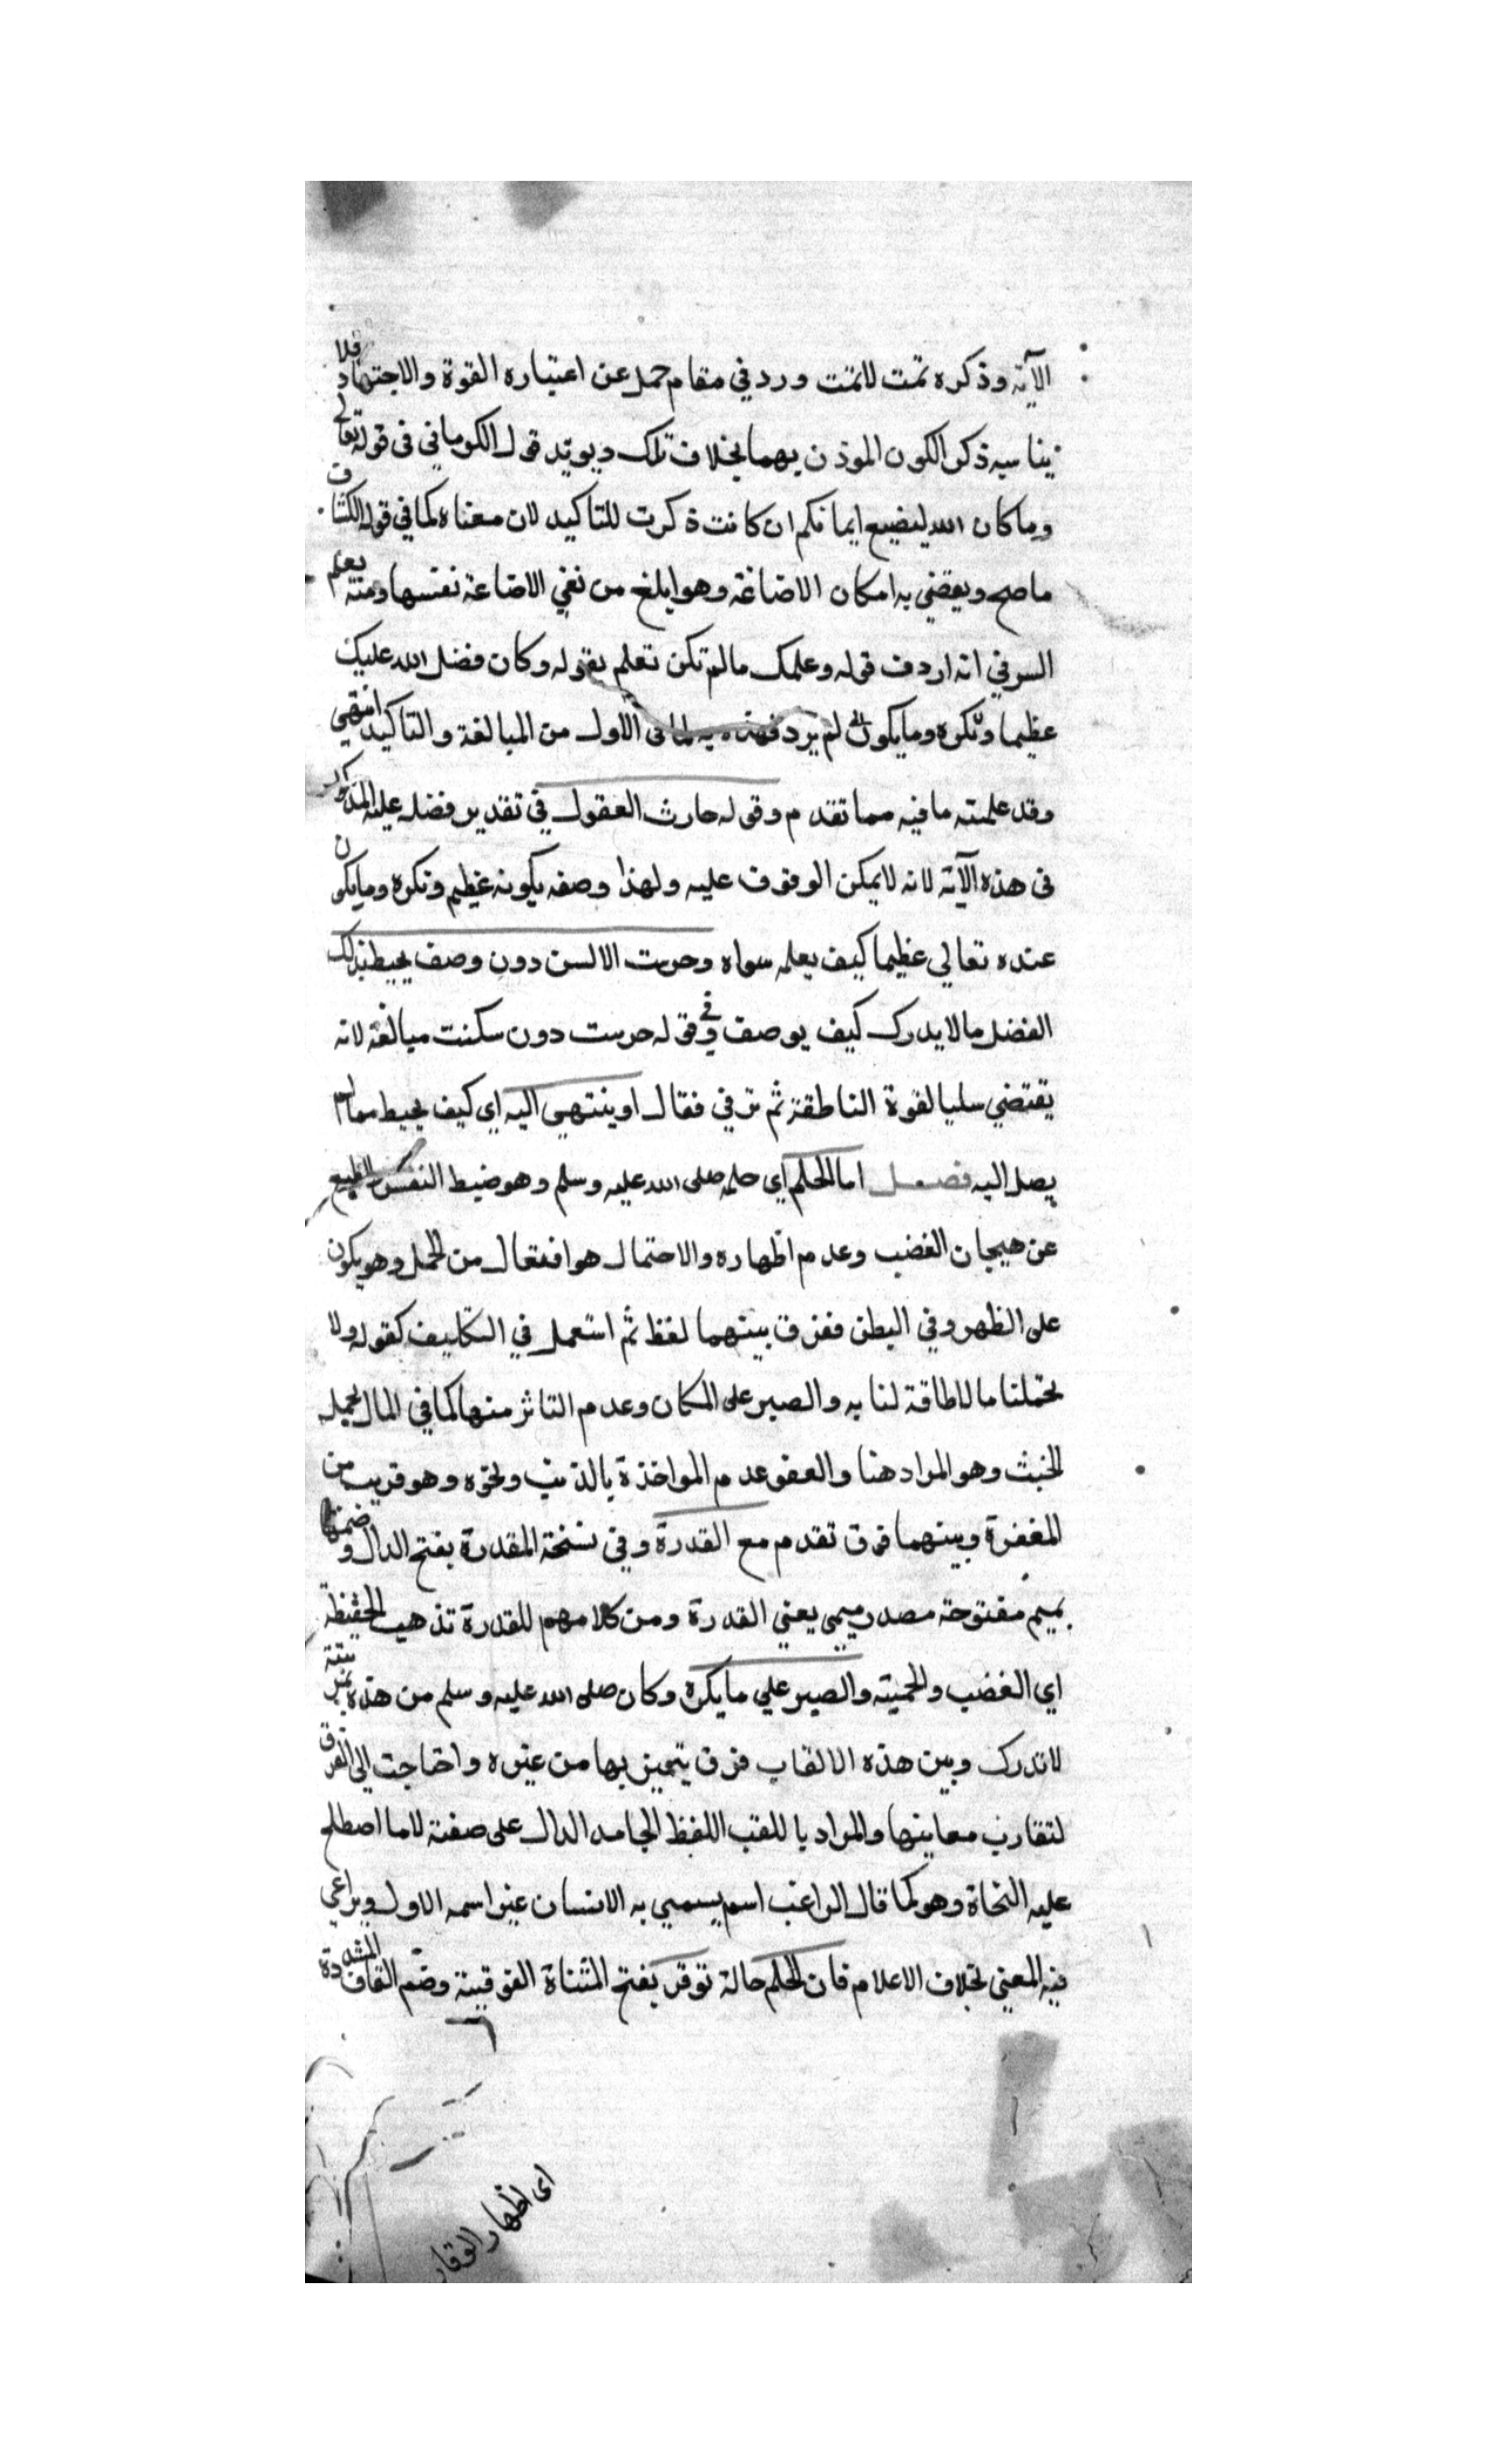 الآية وذكره تمت لاتمت ورد في مقام حمل عن اعتباره القوة والاجتهاد فلا
يناسبه ذكر الكون الموذن بهما بخلاف تلك ويويد قول الكرماني في قوله تعالى
وما كان الله ليضيع ايمانكم ان كانت ذكرت للتاكيد لان معناه كما في قوله الكشاف
ما صح ويقضي به امكان الاضاعة وهو ابلغ من نفي الاضاعة نفسها ومنه يعلم
السر في انه اردف قوله وعلمك مالم تكن تعلم بقوله وكان فضل الله عليك
عظيما ونكره وما يكون لم يرد الاول من المبالغة والتاكيد انتهى
وقد علمته ما فيه مما تقدم وقوله حارث العقول في تقدير فضله عليه المذكور
في هذه الآية لانه لايمكن الوقوف عليه ولهذا وصفه بكونه عظيم ونكره وما يكون
عنده تعالي عظيما كيف يعلمه سواه وخرست الالسن دون وصف يحيط بذلك
الفضل مالا يدرك كيف يوصف وفي قوله خرست دون سكنت مبالغة لانه
يقتضي سلب القوة الناطقة ثم ترقي فقال او ينتهي اليه اي كيف يحيط بما لم
يصل اليه فصل اما الحلم اي حلمه صلى الله عليه وسلم وهو ضبط النفس والطبع
عن هيجان الغضب وعدم اظهاره والاحتمال هو افتعال من الحمل وهو يكون
على الظهر وفي البطن ففرق بينهما لفظ ثم استعمل في التكليف كقوله ولا
تحملنا مالا طاقة لنا به والصبر على المكان وعدم التاثر منها كما في المال يحمله
الخبث وهو المراد هنا والعفو عدم المواخذة بالذنب ونحوه وهو قريب من
المغفرة وبينهما فرق تقدم مع القدرة وفي نسخة المقدرة بفتح الدال وضمها
بميم مفتوحة مصدر ميمى يعني القدرة ومن كلامهم للقدرة تذهب الحفيظة
اي الغضب والحمية والصبر علي ما يكره وكان صلى الله عليه وسلم من هذه بمرتبة
لاتدرك وبين هذه الالقاب فرق يتميز بها من غيره واحتاجت الى الفرق
لتقارب معاينها والمراد با للقب اللفظ الجامد الدال على صفته لاما اصطلح
عليه النحاة وهو كما قال الراغب اسم يسمي به الانسان غير اسمه الاول ويراعي
فيه المعني بخلاف الاعلام فان الحلم حالة توقر بفتح المثناة الفوقية وضم القاف المشددة
اى اظهار الوقار